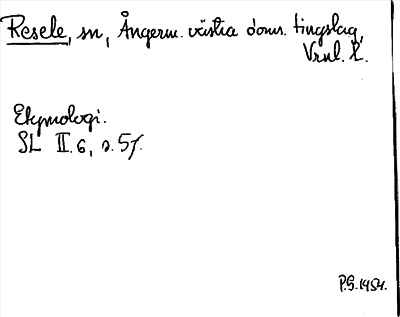 Resele, sn, Ångerm. västra doms. tingslag,
Vrnl. L.
Etymologi.
SL II.6, s. 5f.
P.G. 1954.